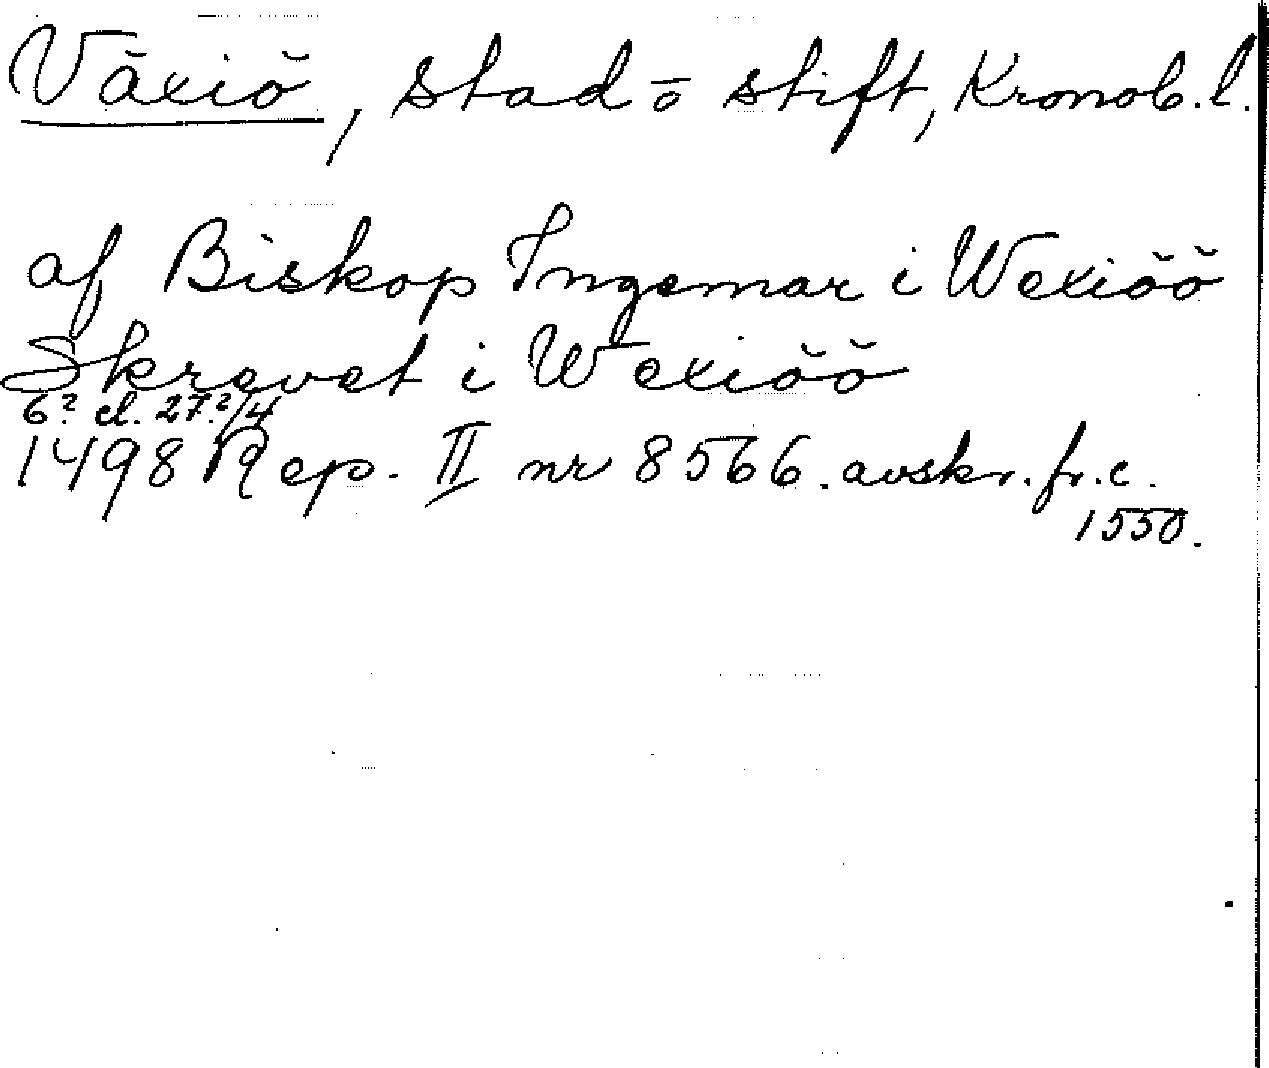 Växiö, stad o stift, Kronob. l.
af Biskop Ingemar i Wexiöö
Skrevet i Wexiöö
6? el. 27?/4
1498 Rep. II nr 8566. avskr. fr. c.
1550.